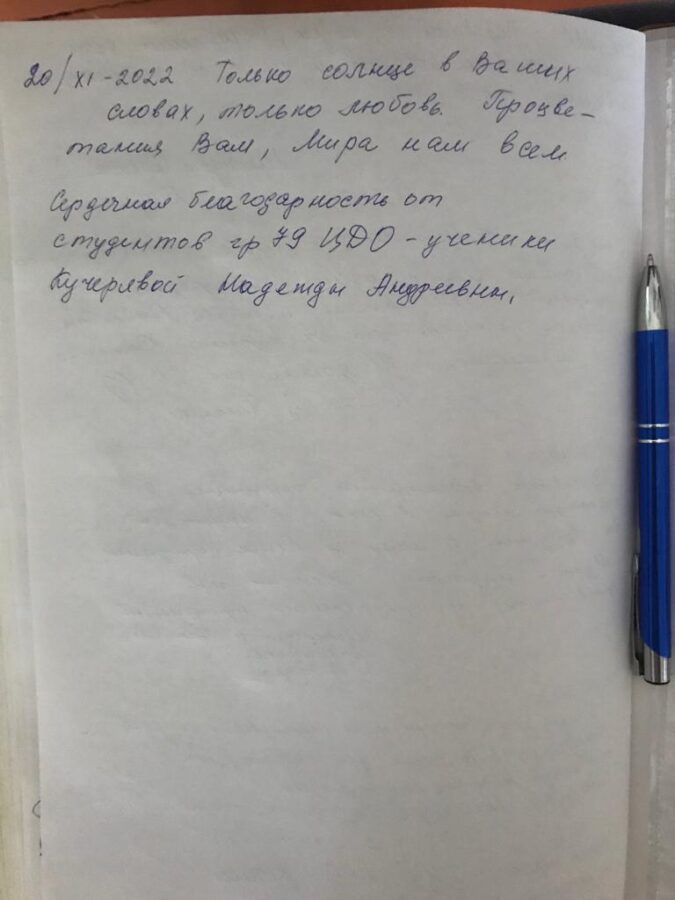 20/XI-2022 Только солнце в Ваших
словах, только любовь. Процве-
тания Вам, Мира нам всем
Сердечная благодарность от
студентов гр 79 ЦДО - ученики
Кучерявой Надежды Андреевны.